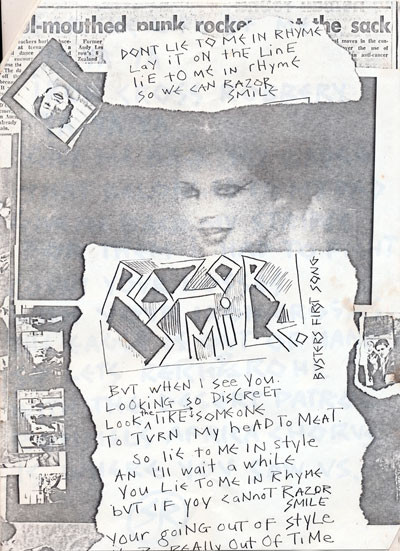 l-mouthed punk rocker get the sack
DONT LIE TO ME IN RHYME
LAY IT ON THE LINE
LIE TO ME IN RHYME
SO WE CAN RAZOR
SMILE
RAZOR
SMILE.
BUSTERS FIRST SONG
BUT WHEN I SEE YOU.
LOOKING SO DISCREET
LOOK THE LIKE SOMEONE
TO TURN MY HEAD TO MEAT.
SO LIE TO ME IN STYLE
AN I'LL WAIT A WHILE
YOU LIE TO ME IN RHYME
BUT IF YOY CANNOT RAZOR
SMILE
YOUR GOING OUT OF STYLE
REALLY OUT OF TIME